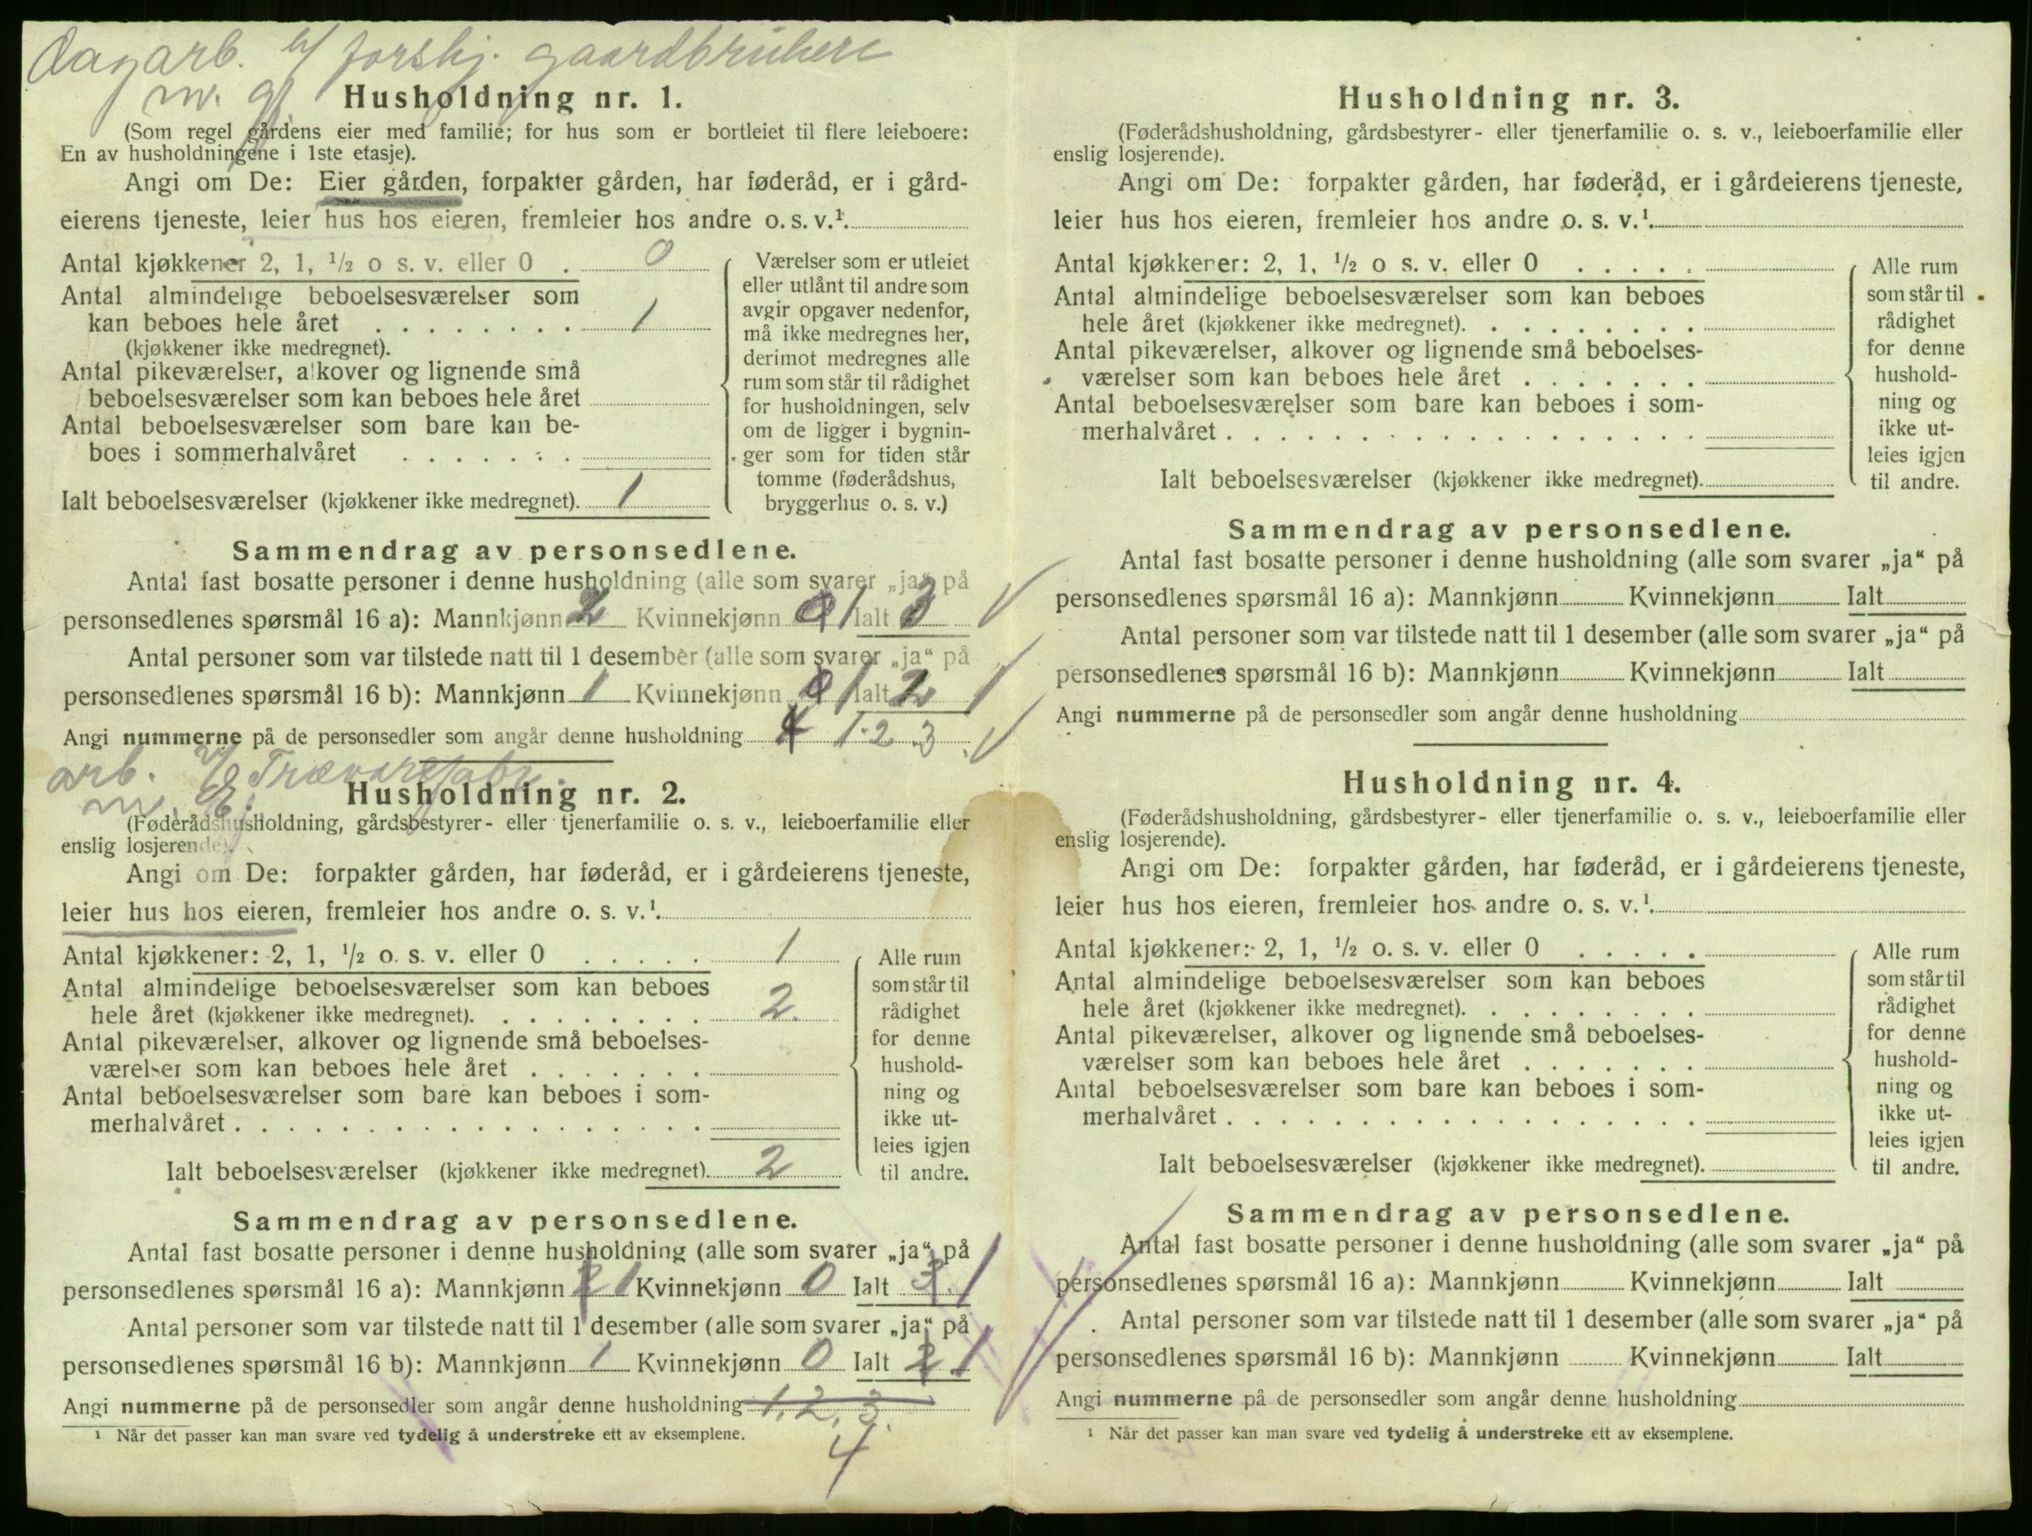 Dagarb. h/ forskj. gaardbrukere
m. gf
Husholdning nr. 1.
(Som regel gårdens eier med familie; for hus som er bortleiet til flere leieboere:
En av husholdningene i 1ste etasje).
Angi om De: Eier gården, forpakter gården, har føderåd, er i gård-
eierens tjeneste, leier hus hos eieren, fremleier hos andre o. s. v.¹.
Antal kjøkkener 2, 1, ½ o s. v. eller 0 . 0
Antal almindelige beboelsesværelser som
kan beboes hele året . . . . . . . . 1
(kjøkkener ikke medregnet).
Antal pikeværelser, alkover og lignende små
beboelsesværelser som kan beboes hele året
Antal beboelsesværelser som bare kan be-
boes i sommerhalvåret . . . . . . .
Ialt beboelsesværelser (kjøkkener ikke medregnet). 1
Værelser som er utleiet
eller utlånt til andre som
avgir opgaver nedenfor,
må ikke medregnes her,
derimot medregnes alle
rum som står til rådighet
for husholdningen, selv
om de ligger i bygnin-
ger som for tiden står
tomme (føderådshus,
bryggerhus o. s. v.)
Sammendrag av personsedlene.
Antal fast bosatte personer i denne husholdning (alle som svarer „ja“ på
personsedlenes spørsmål 16 a): Mannkjønn 2 Kvinnekjønn 0 1 Ialt 3
Antal personer som var tilstede natt til 1 desember (alle som svarer „ja“ på
personsedlenes spørsmål 16 b): Mannkjønn 1 Kvinnekjønn 0 1 Ialt 2
Angi nummerne på de personsedler som angår denne husholdning 4 1. 2 3
arb. v/ Trævarefabr.
m. E.
Husholdning nr. 2.
(Føderådshusholdning, gårdsbestyrer- eller tjenerfamilie o. s. v., leieboerfamilie eller
enslig losjerende).
Angi om De: forpakter gården, har føderåd, er i gårdeierens tjeneste,
leier hus hos eieren, fremleier hos andre o. s. v.¹.
Antal kjøkkener: 2, 1, ½ o. s. v. eller 0 . . . . . 1
Antal almindelige beboelsesværelser som kan beboes
hele året (kjøkkener ikke medregnet). . . . . . . . . 2.
Antal pikeværelser, alkover og lignende små beboelses-
værelser som kan beboes hele året . . . . . . .
Antal beboelsesværelser som bare kan beboes i som-
merhalvåret . . . . . . . . . . . . . . . . . .
Ialt beboelsesværelser (kjøkkener ikke medregnet). 2
Alle rum
som står til
rådighet
for denne
hushold-
ning og
ikke ut-
leies igjen
til andre.
Sammendrag av personsedlene.
Antal fast bosatte personer i denne husholdning (alle som svarer „ja“ på
personsedlenes spørsmål 16 a): Mannkjønn 2 1 Kvinnekjønn 0 Ialt 3. 1
Antal personer som var tilstede natt til 1 desember (alle som svarer „ja“ på
personsedlenes spørsmål 16 b): Mannkjønn 1 Kvinnekjønn 0 Ialt 2 1
Angi nummerne på de personsedler som angår denne husholdning 1, 2, 3.
4
¹ Når det passer kan man svare ved tydelig å understreke ett av eksemplene.
Husholdning nr. 3.
(Føderådshusholdning, gårdsbestyrer- eller tjenerfamilie o. s. v., leieboerfamilie eller
enslig losjerende).
Angi om De: forpakter gården, har føderåd, er i gårdeierens tjeneste,
leier hus hos eieren, fremleier hos andre o. s. v.¹.
Antal kjøkkener: 2, 1, ½ o s. v. eller 0 . . . . .
Antal almindelige beboelsesværelser som kan beboes
hele året (kjøkkener ikke medregnet). . . . . . . . .
Antal pikeværelser, alkover og lignende små beboelses-
værelser som kan beboes hele året . . . . . . .
Antal beboelsesværelser som bare kan beboes i som-
merhalvåret . . . . . . . . . . . . . . . . . .
Ialt beboelsesværelser (kjøkkener ikke medregnet).
Alle rum
som står til
rådighet
for denne
hushold-
ning og
ikke ut-
leies igjen
til andre.
Sammendrag av personsedlene.
Antal fast bosatte personer i denne husholdning (alle som svarer „ja“ på
personsedlenes spørsmål 16 a): Mannkjønn Kvinnekjønn Ialt
Antal personer som var tilstede natt til 1 desember (alle som svarer „ja“ på
personsedlenes spørsmål 16 b): Mannkjønn Kvinnekjønn Ialt
Angi nummerne på de personsedler som angår denne husholdning
Husholdning nr. 4.
(Føderådshusholdning, gårdsbestyrer- eller tjenerfamilie o. s. v., leieboerfamilie eller
enslig losjerende).
Angi om De: forpakter gården, har føderåd, er i gårdeierens tjeneste,
leier hus hos eieren, fremleier hos andre o. s. v.¹.
Antal kjøkkener: 2, 1, ½ o. s. v. eller 0 . . . . .
Antal almindelige beboelsesværelser som kan beboes
hele året (kjøkkener ikke medregnet). . . . . . . . .
Antal pikeværelser, alkover og lignende små beboelses-
værelser som kan beboes hele året . . . . . . .
Antal beboelsesværelser som bare kan beboes i som-
merhalvåret . . . . . . . . . . . . . . . . . .
Ialt beboelsesværelser (kjøkkener ikke medregnet).
Alle rum
som står til
rådighet
for denne
hushold-
ning og
ikke ut-
leies igjen
til andre.
Sammendrag av personsedlene.
Antal fast bosatte personer i denne husholdning (alle som svarer „ja“ på
personsedlenes spørsmål 16 a): Mannkjønn Kvinnekjønn Ialt
Antal personer som var tilstede natt til 1 desember (alle som svarer „ja“ på
personsedlenes spørsmål 16 b): Mannkjønn Kvinnekjønn Ialt
Angi nummerne på de personsedler som angår denne husholdning
¹ Når det passer kan man svare ved tydelig å understreke ett av eksemplene.